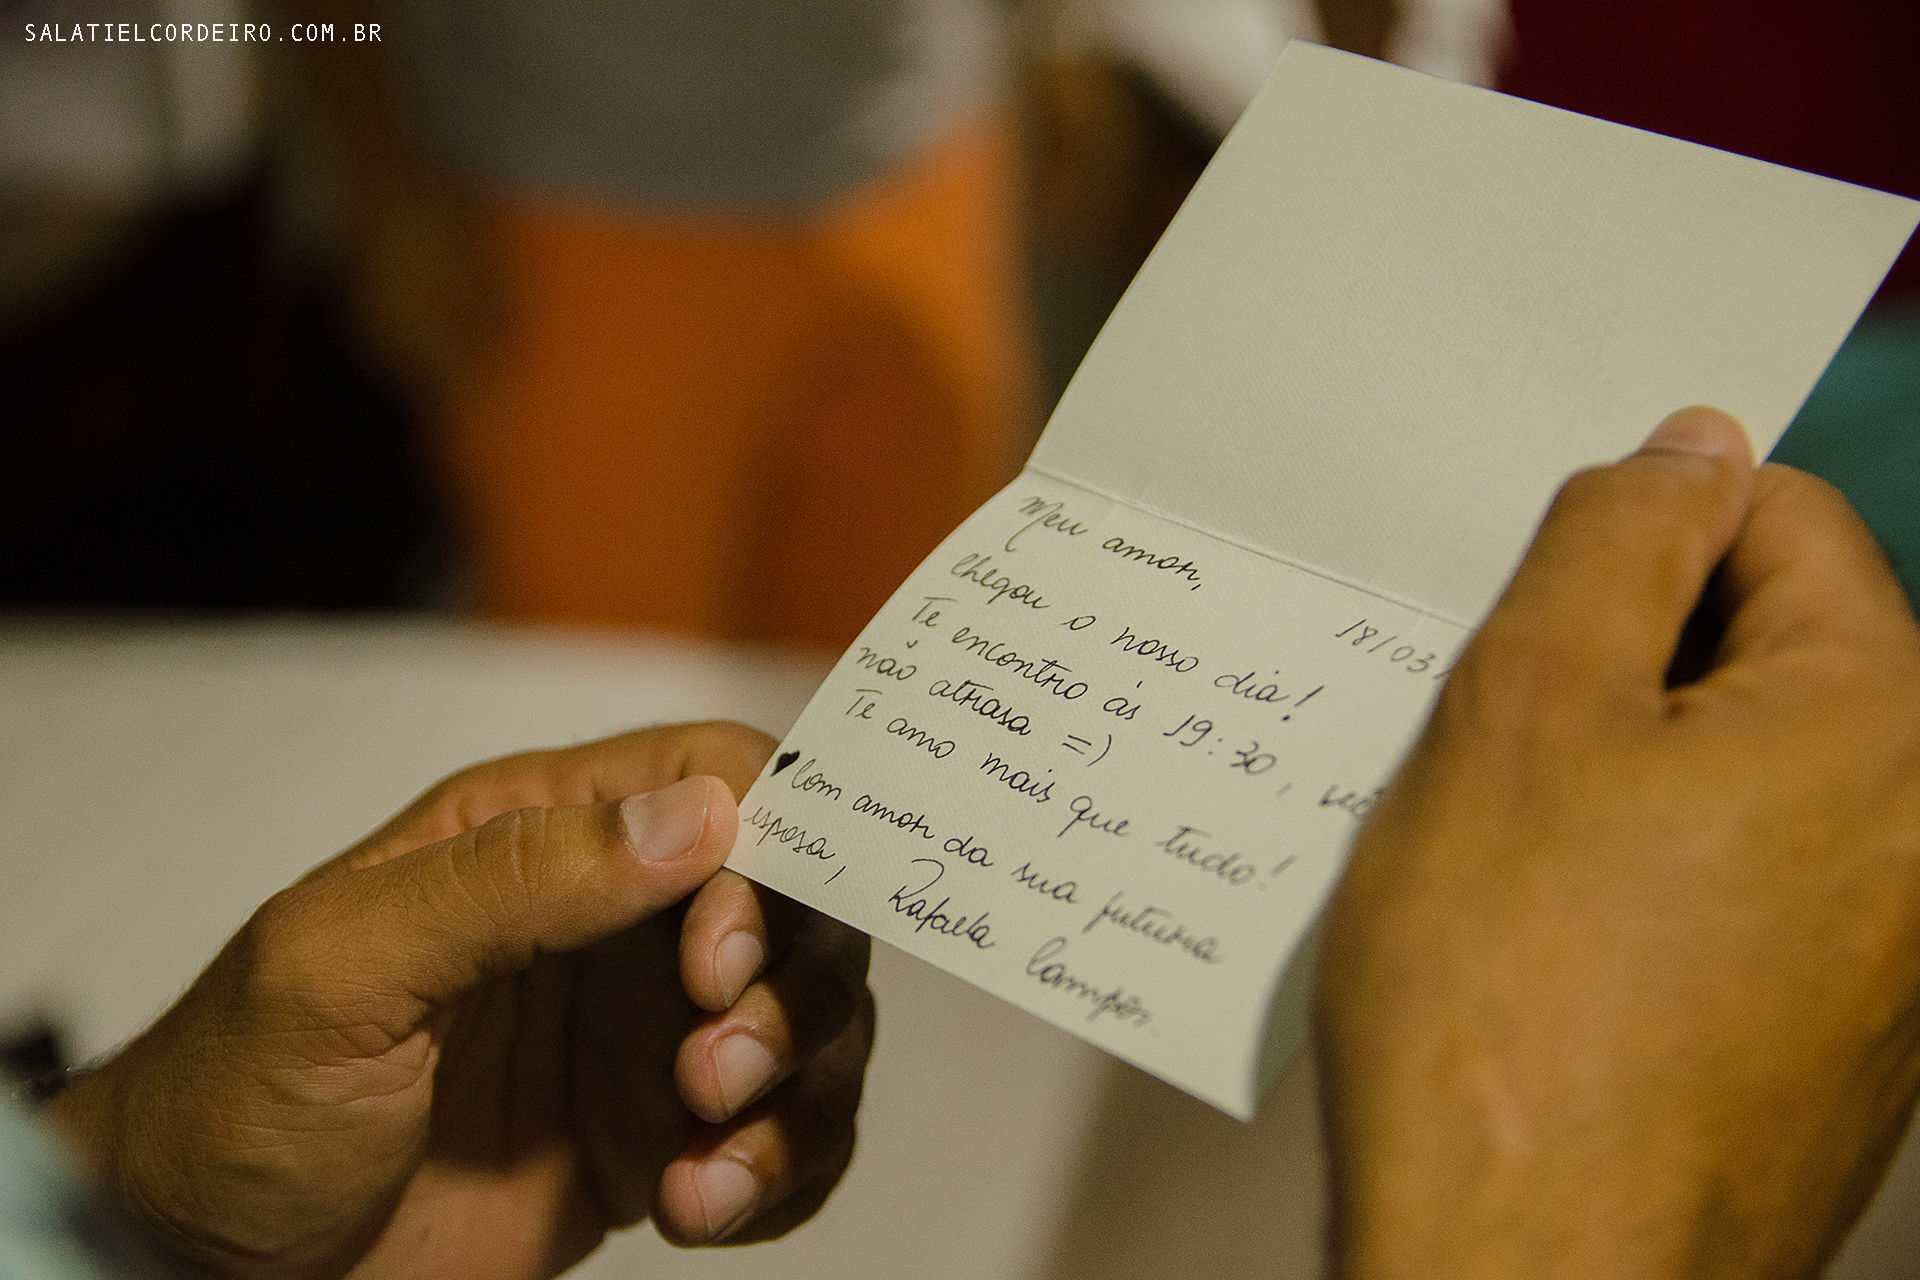 SALATIELCORDEIRO.COM.BR
Meu amor,
18/03
Chegou o nosso dia!
Te encontro ás 19:30, vê
não atrasa =)
Te amo mais que tudo!
♥ Com amor da sua futura
esposa, Rafaela Campos.